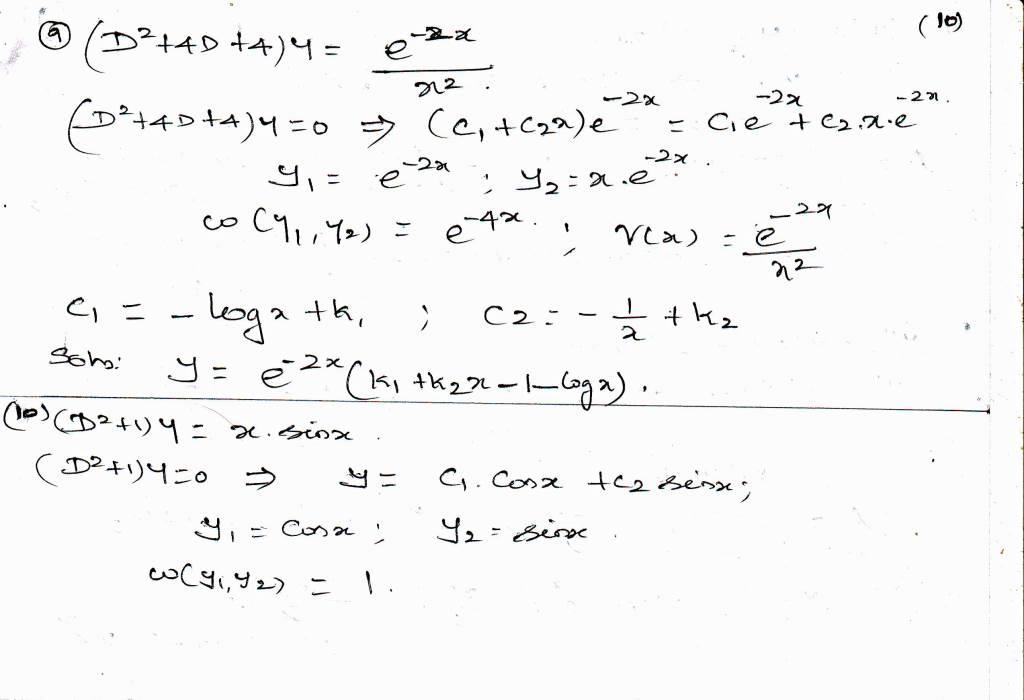 (10)
⑨ (D²+4D+4)y = e^{-2x}/x².
(D²+4D+4)y=0 ⇒ (C₁+C₂x)e^{-2x} = C₁e^{-2x} + C₂.x.e^{-2x}.
y₁ = e^{-2x} ; y₂ = x.e^{-2x}.
ω(y₁,y₂) = e^{-4x}. ; r(x) = e^{-2x}/x²
C₁ = -logx + k₁ ; C2 = -1/x + k₂
Soln: y = e^{-2x}(k₁+k₂x-1-logx).
(10) (D²+1)y = x.sinx.
(D²+1)y=0 ⇒ y = C₁.Cosx + C₂ sinx;
y₁ = Cosx ; y₂ = sinx.
ω(y₁,y₂) = 1.